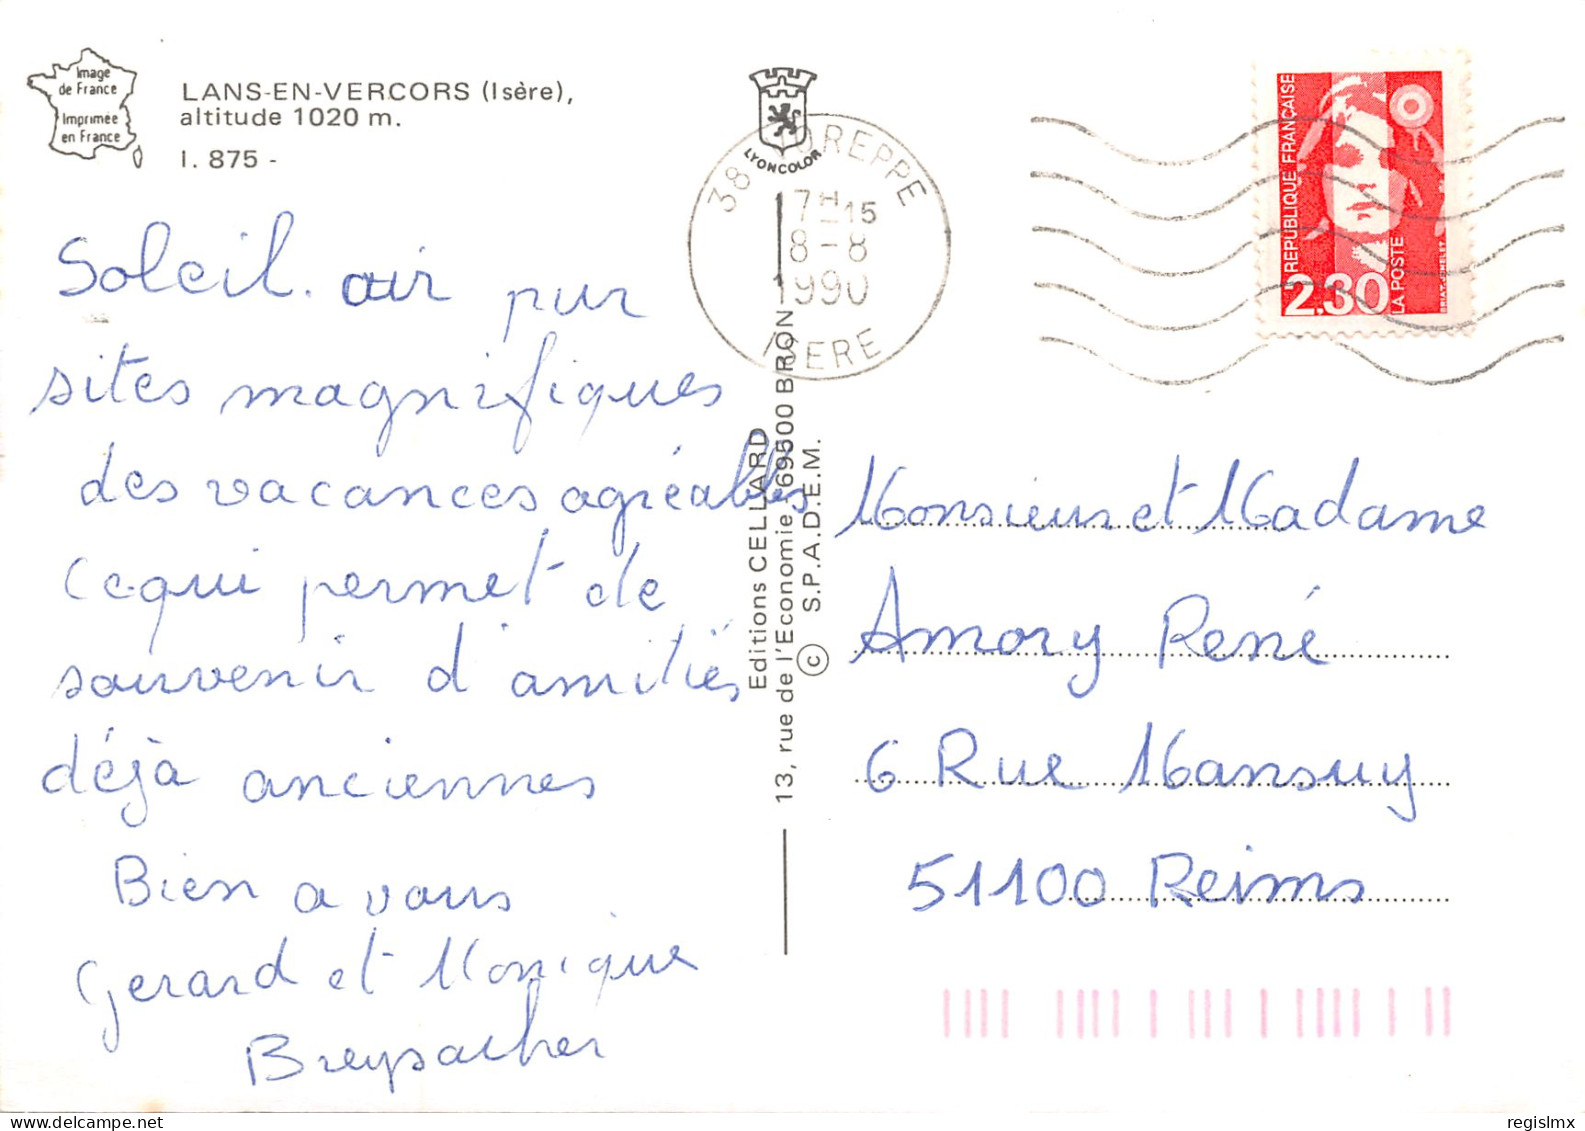 Image
de France
Imprimée
en France
LANS-EN-VERCORS (Isère),
altitude 1020 m.
I. 875 -
LYONCOLOR
38 VOREPPE
17H15
8-8
1990
ISERE
REPUBLIQUE FRANÇAISE
2.30
LA POSTE
BRIAT-JUMELET
Soleil. air pur
sites magnifiques
des vacances agréables
Ce qui permet de
souvenir d'amitiés
déjà anciennes
Bien a vous
Gerard et Monique
Breysacher
Editions CELLARD
13, rue de l'Economie - 69500 BRON
© S.P.A.D.E.M.
Monsieur et Madame
Amory René
6 Rue Mansuy
51100 Reims
regislmx